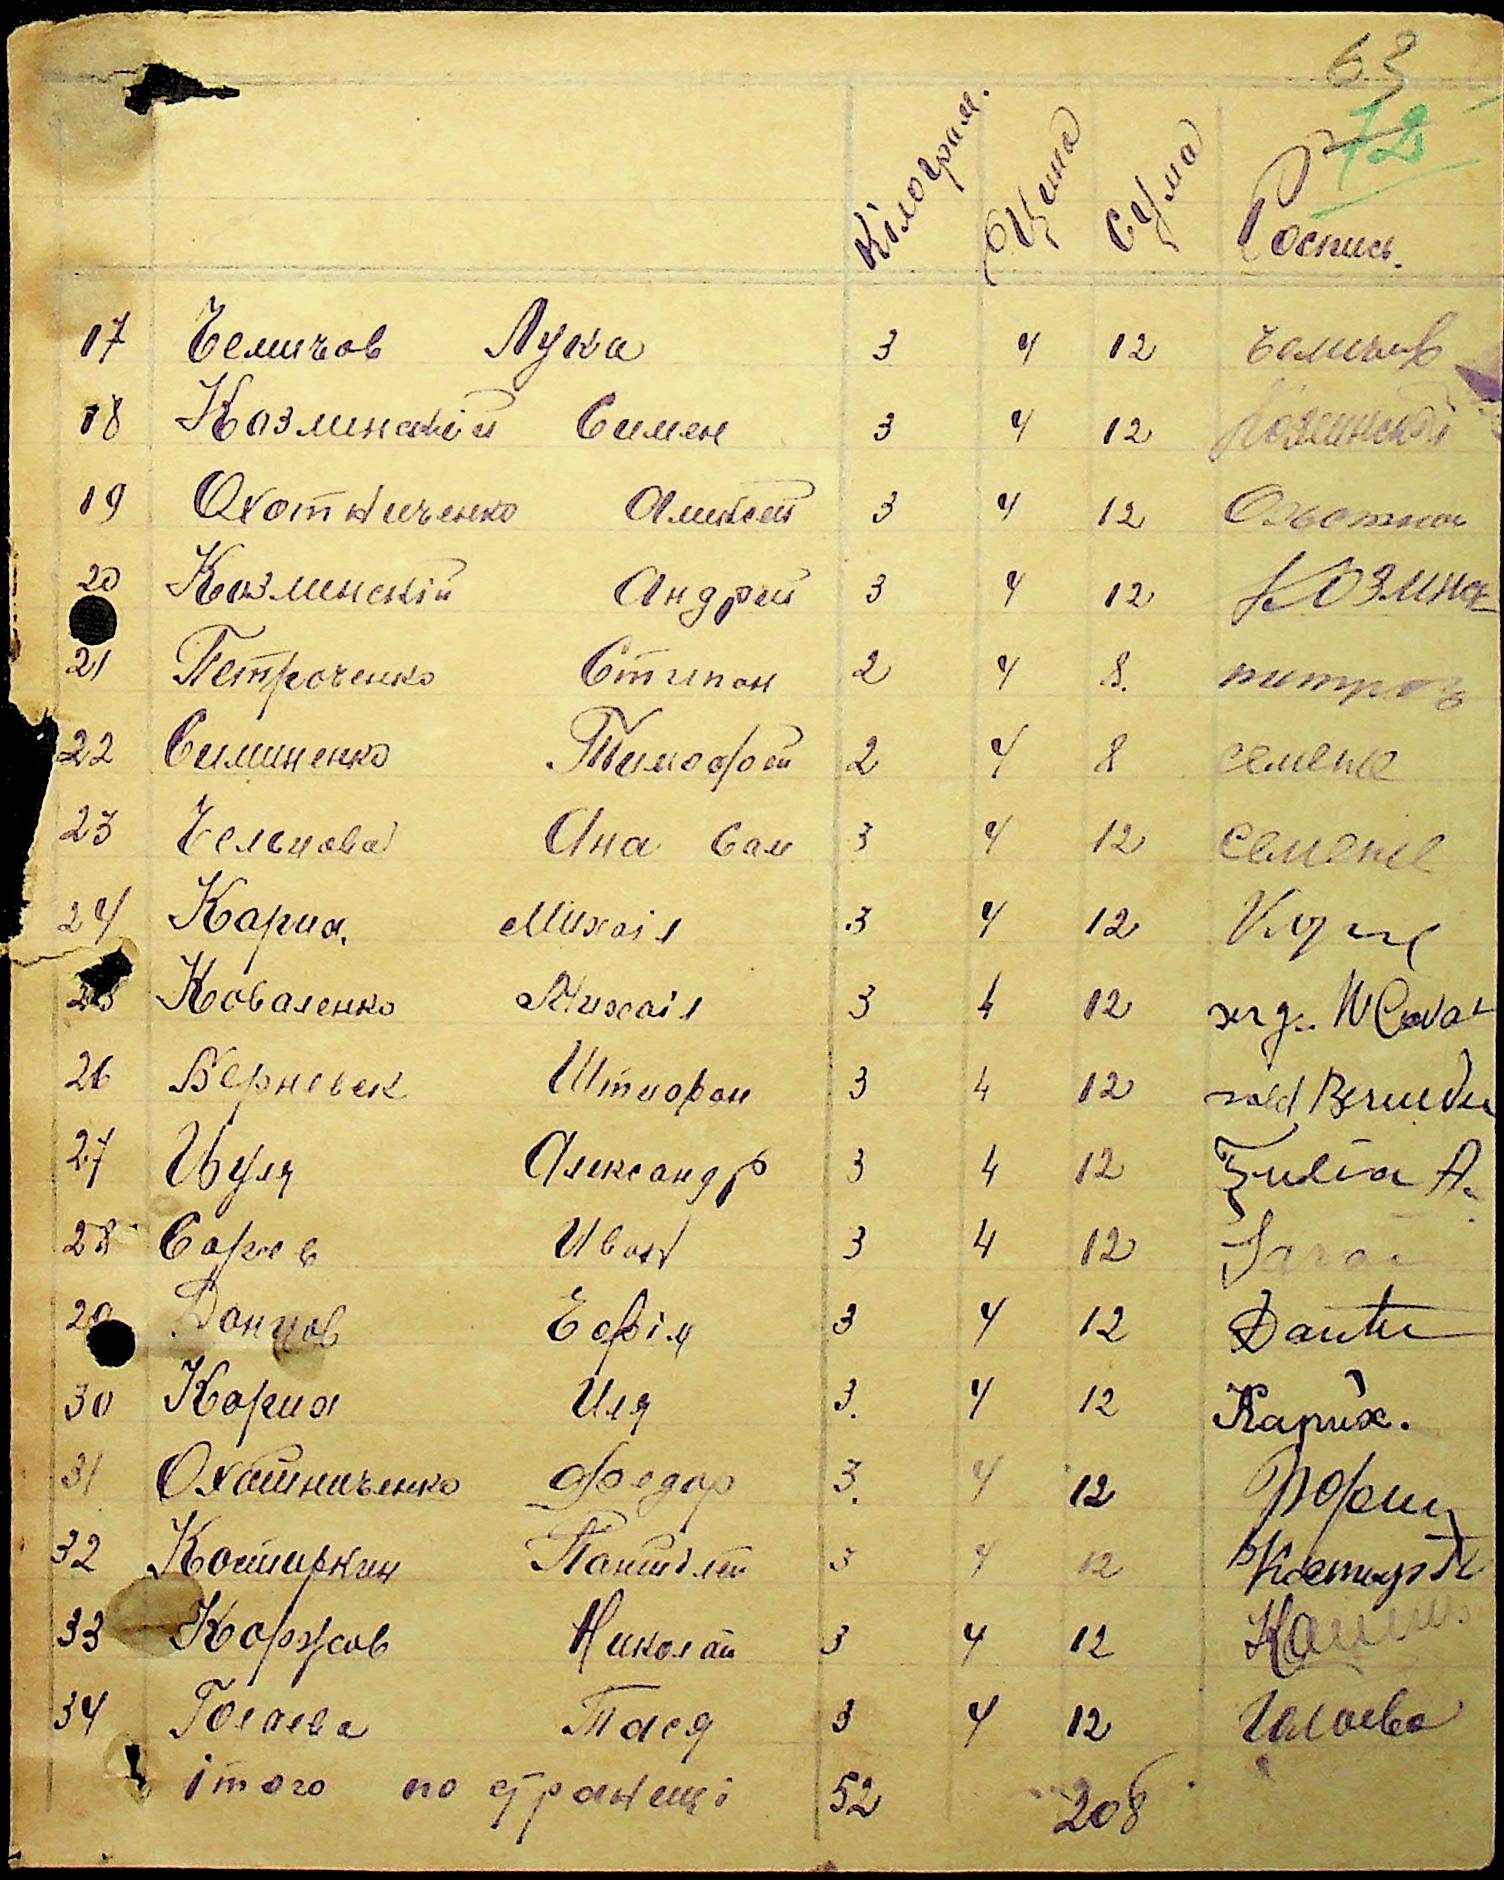 63
72
Кілограм. Цина Сума Роспись.
17 Челичов Лука 3 4 12 Челичов
18 Козлинский Симен 3 4 12 Козлинской
19 Охотниченко Аликсей 3 4 12 Охотнич
20 Козлинскій Андрей 3 4 12 Козлинс
21 Петроченко Стипан 2 4 8. питроч
22 Симиненко Тимофей 2 4 8 семене
23 Чельцова Ана Сам 3 4 12 семене
24 Кариа. Михаіл 3 4 12
25 Коваленко Михаіл 3 4 12 Covat
26 Берневек Штиофан 3 4 12 sold
27 Цуля Александр 3 4 12 Țulea A.
28 Сарев Иван 3 4 12 Sarai
29 Донцов Ефім 3 4 12
30 Кариа Иля 3. 4 12 Карих.
31 Охотниченко Федар 3. 4 12
32 Костиркин Пантілей 3 4 12
33 Коржов Николай 3 4 12
34 Голаева Тася 3 4 12 Голаева
ітого по странеці 52 208